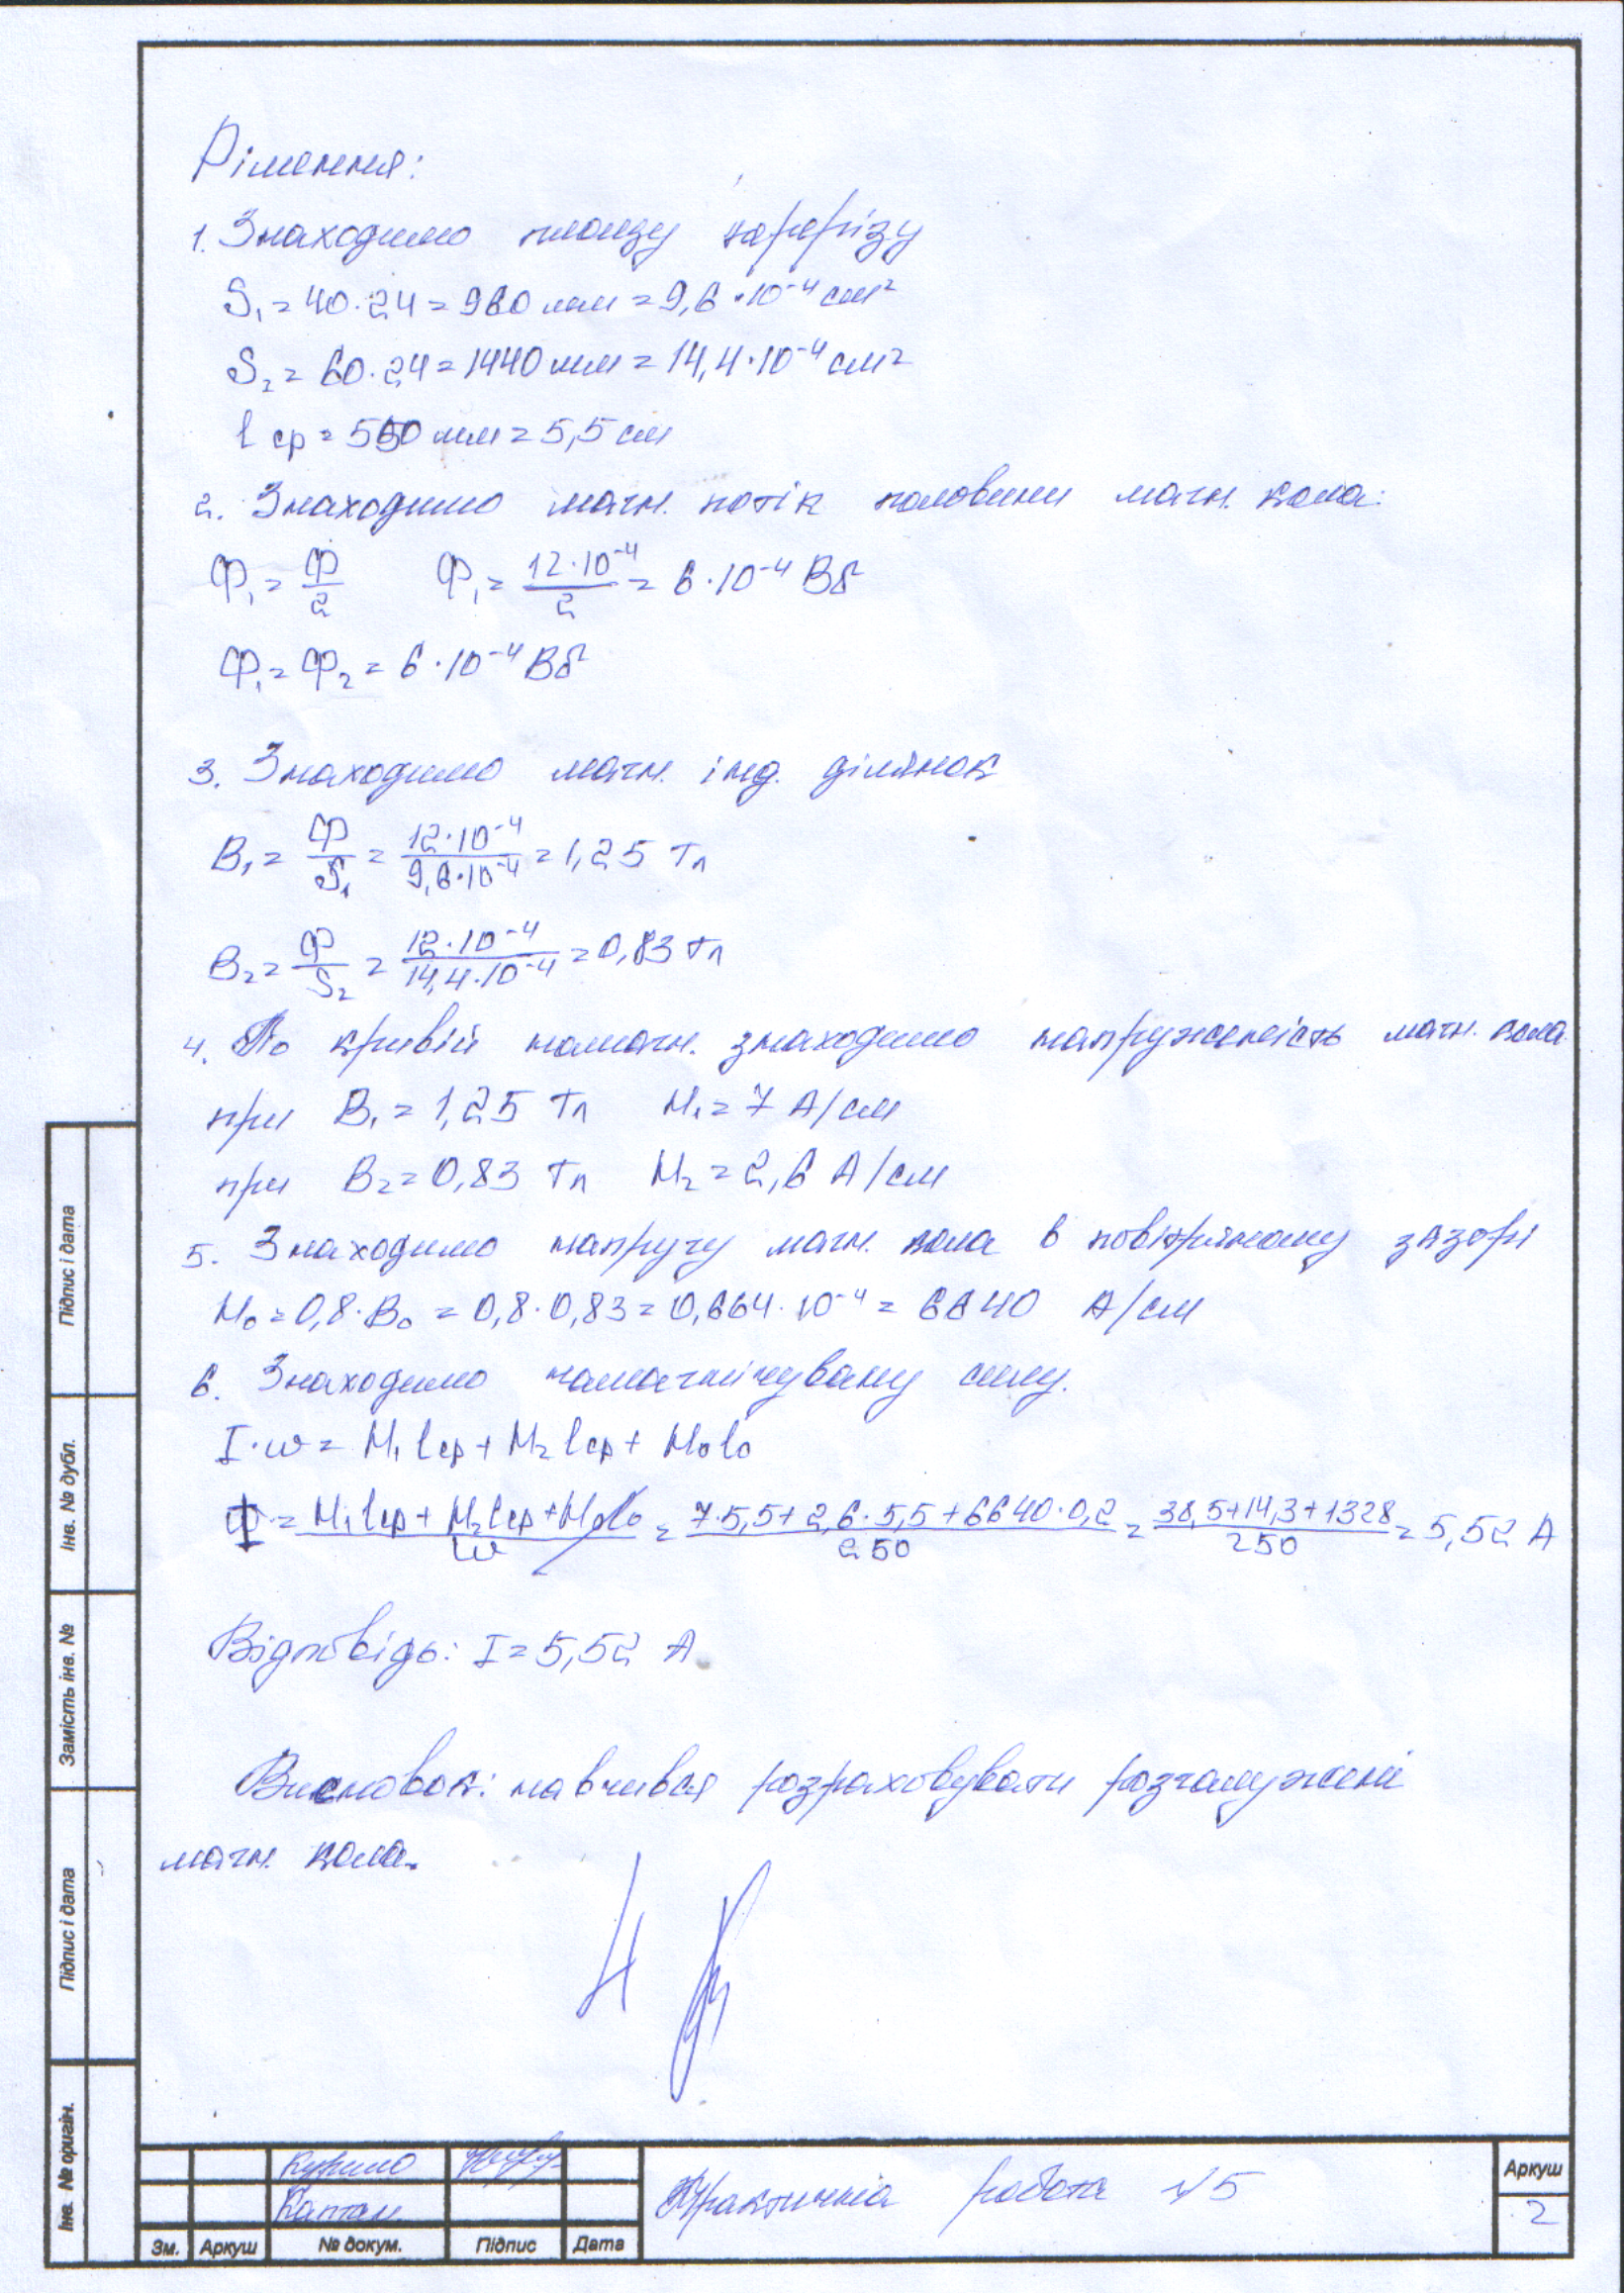 Рішення:
1. Знаходимо площу перерізу
S₁ = 40·24 = 960 мм = 9,6·10⁻⁴ см²
S₂ = 60·24 = 1440 мм = 14,4·10⁻⁴ см²
l ср = 550 мм = 5,5 см
2. Знаходимо магн. потік половини магн. кола:
Ф₁ = Ф/2 Ф₁ = 12·10⁻⁴/2 = 6·10⁻⁴ Вб
Ф₁ = Ф₂ = 6·10⁻⁴ Вб
3. Знаходимо магн. інд. ділянок
B₁ = Ф/S₁ = 12·10⁻⁴/9,6·10⁻⁴ = 1,25 Тл
B₂ = Ф/S₂ = 12·10⁻⁴/14,4·10⁻⁴ = 0,83 Тл
4. По кривій намагн. знаходимо напруженість магн. поля
при B₁ = 1,25 Тл H₁ = 7 А/см
при B₂ = 0,83 Тл H₂ = 2,6 А/см
5. Знаходимо напругу магн. поля в повітряному зазорі
H₀ = 0,8·B₀ = 0,8·0,83 = 0,664·10⁻⁴ = 6640 А/см
6. Знаходимо намагнічувану силу.
I·w = H₁lср + H₂lср + H₀l₀
I = H₁lср + H₂lср + H₀l₀/w = 7·5,5+2,6·5,5+6640·0,2/250 = 38,5+14,3+1328/250 = 5,52 А
Відповідь: I = 5,52 А.
Висновок: навчився розраховувати розгалужені
магн. кола.
Підпис і дата
Інв. № дубл.
Замість інв. №
Підпис і дата
Інв. № оригін.
Каптан
Зм. Аркуш № докум. Підпис Дата
Практична робота №5
Аркуш
2